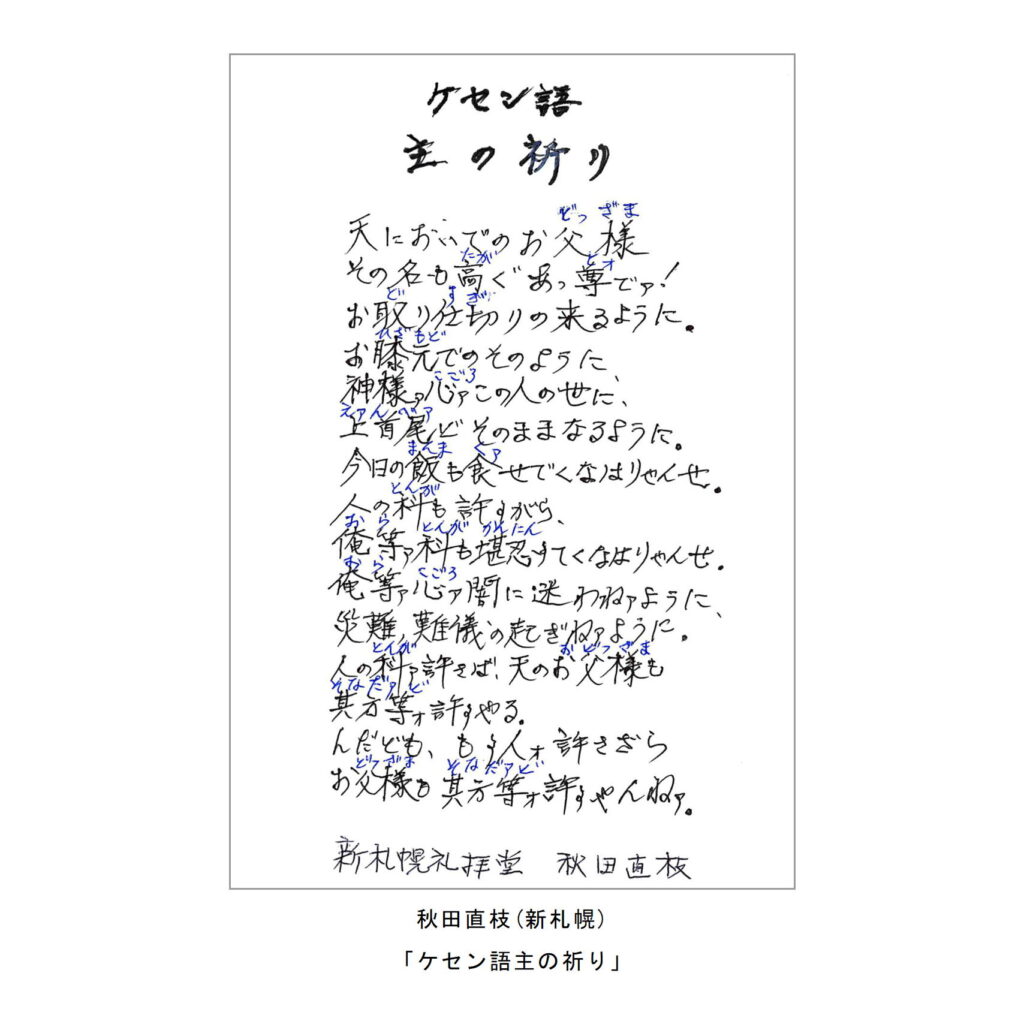 ケセン語
主の祈り
どっ ざま
天においでのお父様
たが とォ
その名も高ぐあっ尊でァ!
ど すぎ
お取り仕切りの来るように。
ひざもど
お膝元でのそのように、
こごろ
神様ァ心ァこの人の世に、
えァんべァ
上首尾ど そのままなるように。
まんま くァ
今日の飯も食せでくなはりゃんせ。
とんが
人の科も許すがら、
おら とんが かんにん
俺等ァ科も堪忍すてくなはりゃんせ。
おら こごろ
俺等ァ心ァ闇に迷わねァように、
災難、難儀の起ぎねァように。
とんが おどっざま
人の科ァ許さば、天のお父様も
そなだァど
其方等ォ許すやる。
んだども、もす人ォ許さざら
どっざま そなだァど
お父様も其方等ォ許すやんねァ。
新札幌礼拝堂 秋田直枝
秋田直枝(新札幌)
「ケセン語主の祈り」